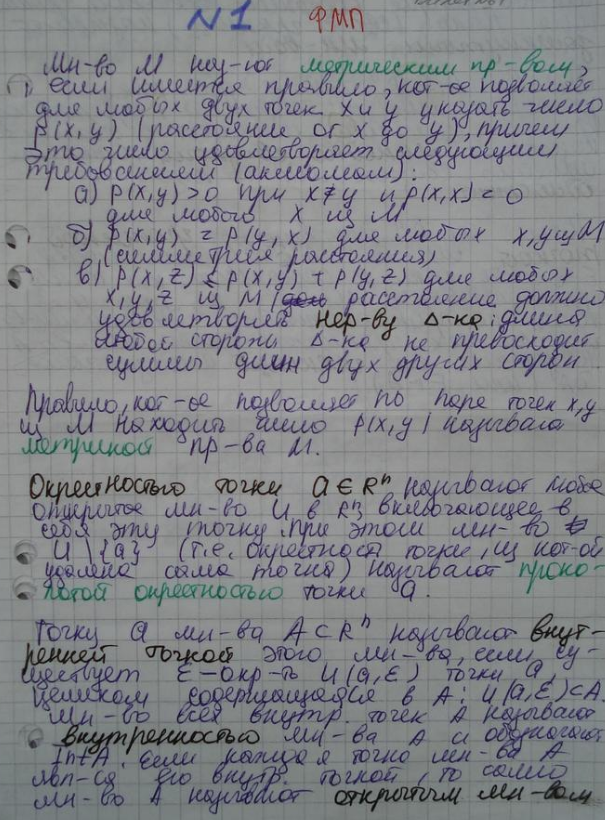 №1 ФМП
Мн-во М наз-ют метрическим пр-вом,
если имеется правило, кот-ое позволяет
для любых двух точек x и y указать число
ρ(x,y) (расстояние от x до y), причем
это число удовлетворяет следующим
требованиям (аксиомам):
а) ρ(x,y)>0 при x≠y и ρ(x,x)=0
для любого x из М.
б) ρ(x,y) = ρ(y,x) для любых x,y из М
(симметрия расстояния)
в) ρ(x,z) ≤ ρ(x,y) + ρ(y,z) для любых
x,y,z из М (расстояние должно
удовлетворять нер-ву Δ-ка: длина
любой стороны Δ-ка не превосходит
суммы длин двух других сторон
Правило, кот-ое позволяет по паре точек x,y
из М находить число ρ(x,y) называют
метрикой пр-ва М.
Окрестностью точки a∈Rⁿ называют любое
открытое мн-во U в Rⁿ, включающее в
себя эту точку, при этом мн-во
U\{a} (т.е. окрестность точки, из кот-ой
удалена сама точка) называют проко-
лотой окрестностью точки a.
Точку a мн-ва A⊂Rⁿ называют внут-
ренней точкой этого мн-ва, если су-
ществует ε-окр-ть U(a,ε) точки a,
целиком содержащаяся в A: U(a,ε)⊂A
Мн-во всех внутр. точек A называют
внутренностью мн-ва A и обозначают
IntA. Если каждая точка мн-ва A
явл-ся его внутр. точкой, то само
мн-во A называют открытым мн-вом